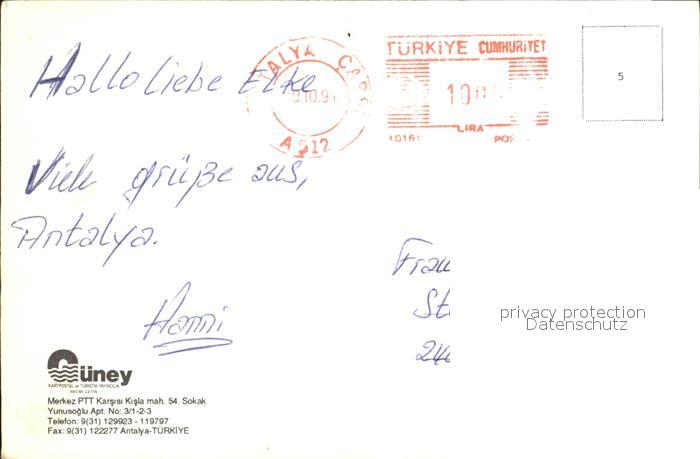 Hallo liebe Elke
Viele grüße aus,
Antalya.
Hanni
TALYA
.10.9
A 512
TÜRKİYE CUMHURİYET
LİRA
POS
5
Frau
St
privacy protection
Datenschutz
Güney
KARTPOSTAL ve TURİSTİK YAYINCILIK
Merkez PTT Karşısı Kışla mah. 54. Sokak
Yunusoğlu Apt. No: 3/1-2-3
Telefon: 9(31) 129923 - 119797
Fax: 9(31) 122277 Antalya-TÜRKİYE